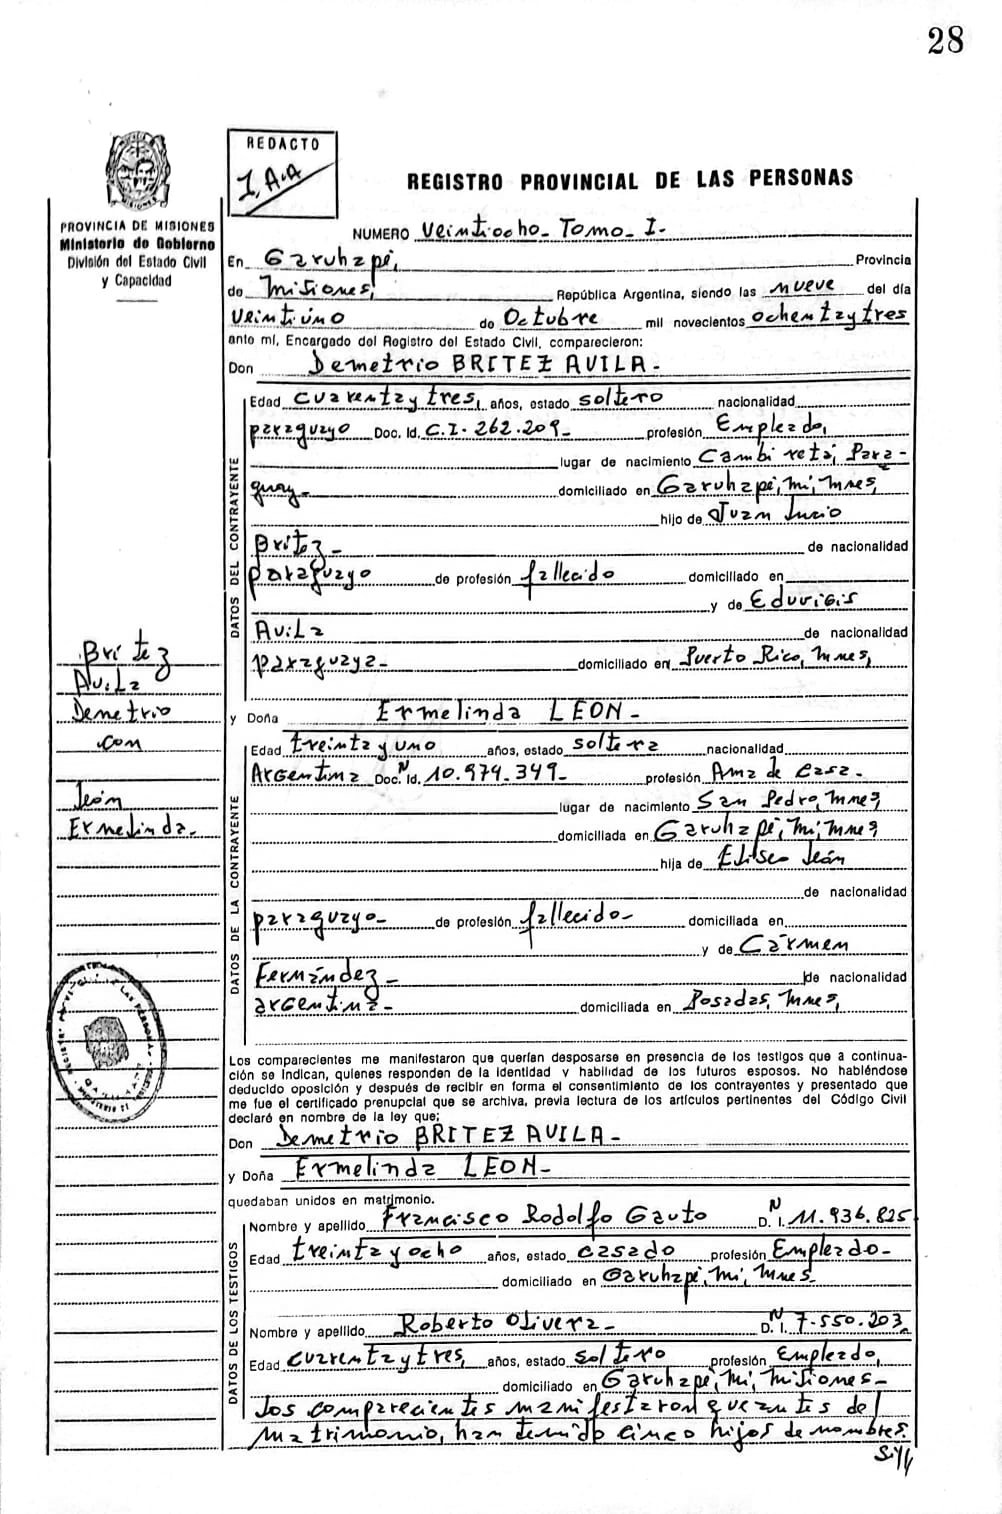 28
REDACTO
I.A.A
REGISTRO PROVINCIAL DE LAS PERSONAS
PROVINCIA DE MISIONES
Ministerio de Gobierno
División del Estado Civil
y Capacidad
NUMERO Veintiocho- Tomo- I-
En Garuhapé, Provincia
de Misiones, República Argentina, siendo las nueve del día
veintiuno de Octubre mil novecientos ochentaytres
ante mí, Encargado del Registro del Estado Civil, comparecieron:
Don Demetrio BRITEZ AVILA-
DATOS DEL CONTRAYENTE
Edad cuarentaytres, años, estado soltero nacionalidad
paraguayo Doc. Id. C.I. 262.209- profesión Empleado,
lugar de nacimiento Cambiretá, Para-
guay- domiciliado en Garuhapé, Mí, Mnes,
hijo de Juan Lucio
Britez- de nacionalidad
paraguayo de profesión fallecido domiciliado en
y de Eduvigis
Avila de nacionalidad
paraguaya- domiciliado en Puerto Rico, Mnes,
y Doña Ermelinda LEON-
DATOS DE LA CONTRAYENTE
Edad treinta y uno años, estado soltera nacionalidad
Argentina Doc. N Id. 10.974.349- profesión Ama de casa-
lugar de nacimiento San Pedro, Mnes,
domiciliada en Garuhapé, Mí, Mnes,
hija de Eliseo León
de nacionalidad
paraguayo- de profesión fallecido- domiciliada en
y de Cármen
Fernández- de nacionalidad
argentina- domiciliada en Posadas, Mnes,
Britez
Avila
Demetrio
con
León
Ermelinda.
Los comparecientes me manifestaron que querían desposarse en presencia de los testigos que a continua-
ción se indican, quienes responden de la identidad y habilidad de los futuros esposos. No habiéndose
deducido oposición y después de recibir en forma el consentimiento de los contrayentes y presentado que
me fue el certificado prenupcial que se archiva, previa lectura de los artículos pertinentes del Código Civil
declaró en nombre de la ley que;
Don Demetrio BRITEZ AVILA-
y Doña Ermelinda LEON-
quedaban unidos en matrimonio.
DATOS DE LOS TESTIGOS
Nombre y apellido Francisco Rodolfo Gauto D. N I. 11.936.825
Edad treinta y ocho años, estado casado profesión Empleado-
domiciliado en Garuhapé, Mí, Mnes
Nombre y apellido Roberto Olivera- D. N I. 7.550.203,
Edad cuarentaytres, años, estado soltero profesión Empleado,
domiciliado en Garuhapé, Mí, Misiones-
Los comparecientes manifestaron que antes del
matrimonio, han tenido cinco hijos de nombres.